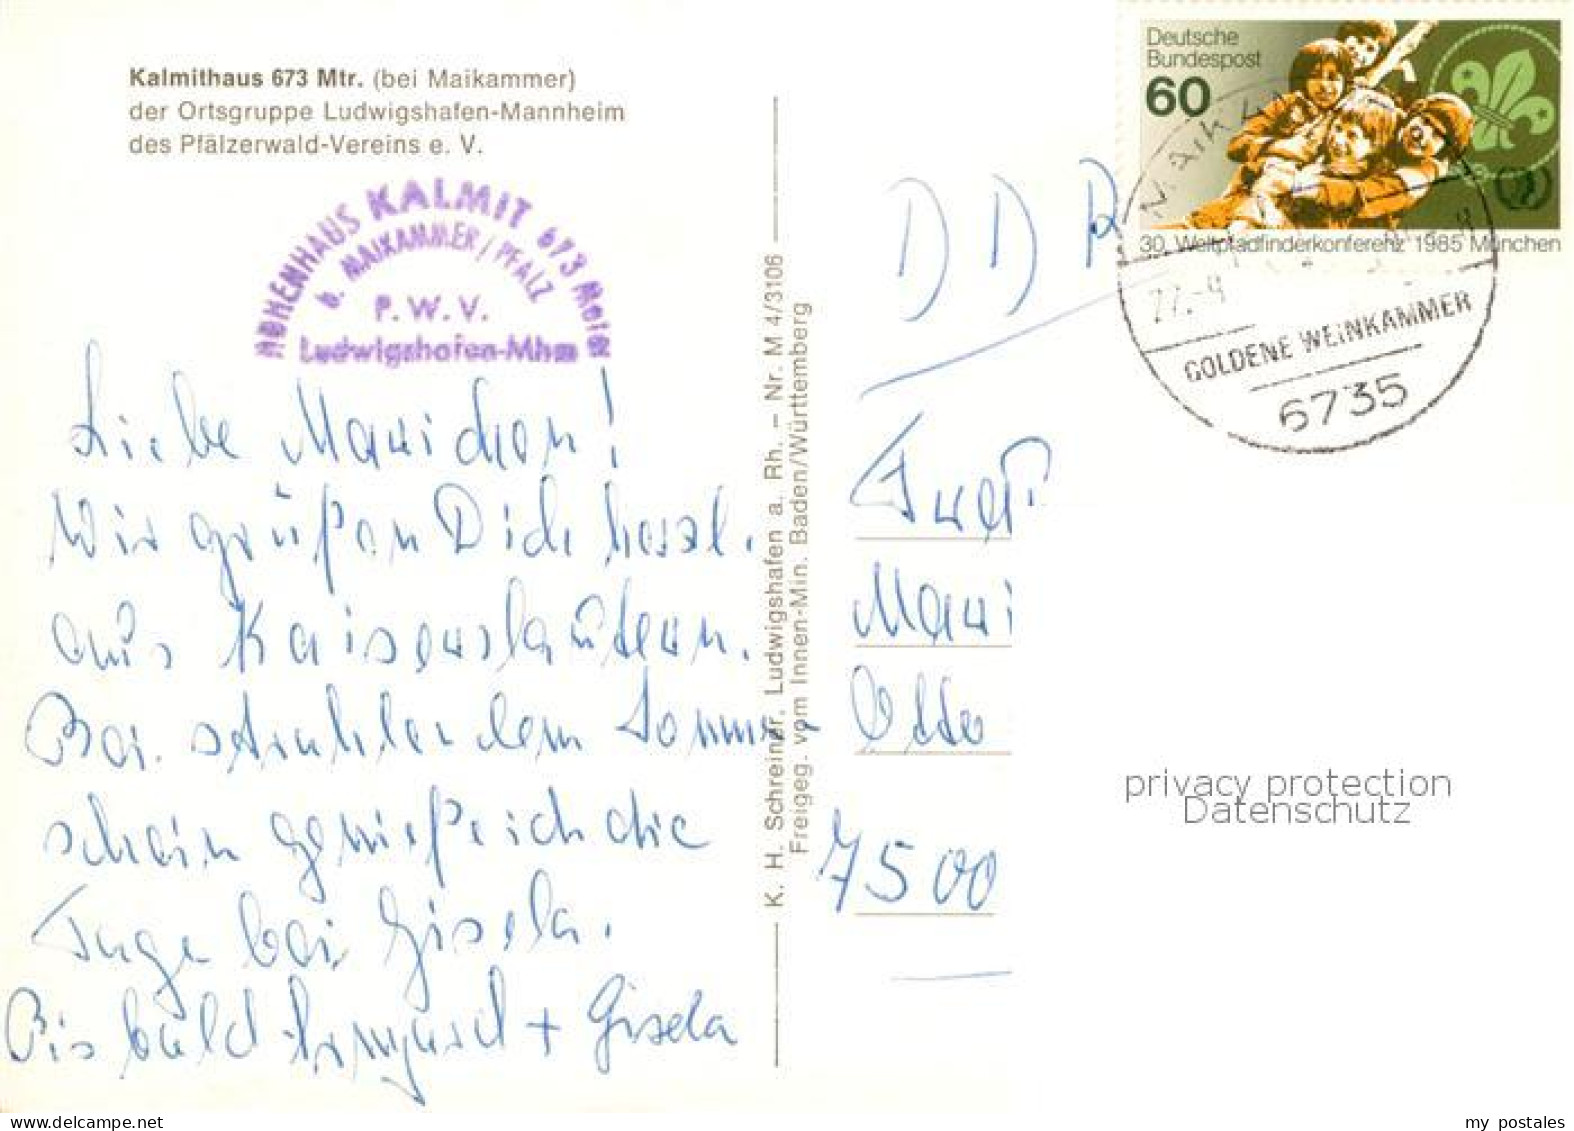 Kalmithaus 673 Mtr. (bei Maikammer)
der Ortsgruppe Ludwigshafen-Mannheim
des Pfälzerwald-Vereins e. V.
HÖHENHAUS KALMIT 673 Meter
b. MAIKAMMER / PFALZ
P. W. V.
Ludwigshafen-Mhm
Liebe Mariechen!
Wir grüßen Dich herzl.
aus Kaiserslautern.
Bei strahlendem Sonnen
schein genieße ich die
Tage bei Gisela.
Bis bald Irmgard + Gisela
K. H. Schreiner, Ludwigshafen a. Rh. – Nr. M 4/3106
Freigeg. vom Innen-Min. Baden/Württemberg
Deutsche
Bundespost
60
30. Weltpfadfinderkonferenz 1985 München
GOLDENE WEINKAMMER
6735
DDR
Mari
Otto
7500
privacy protection
Datenschutz
my postales